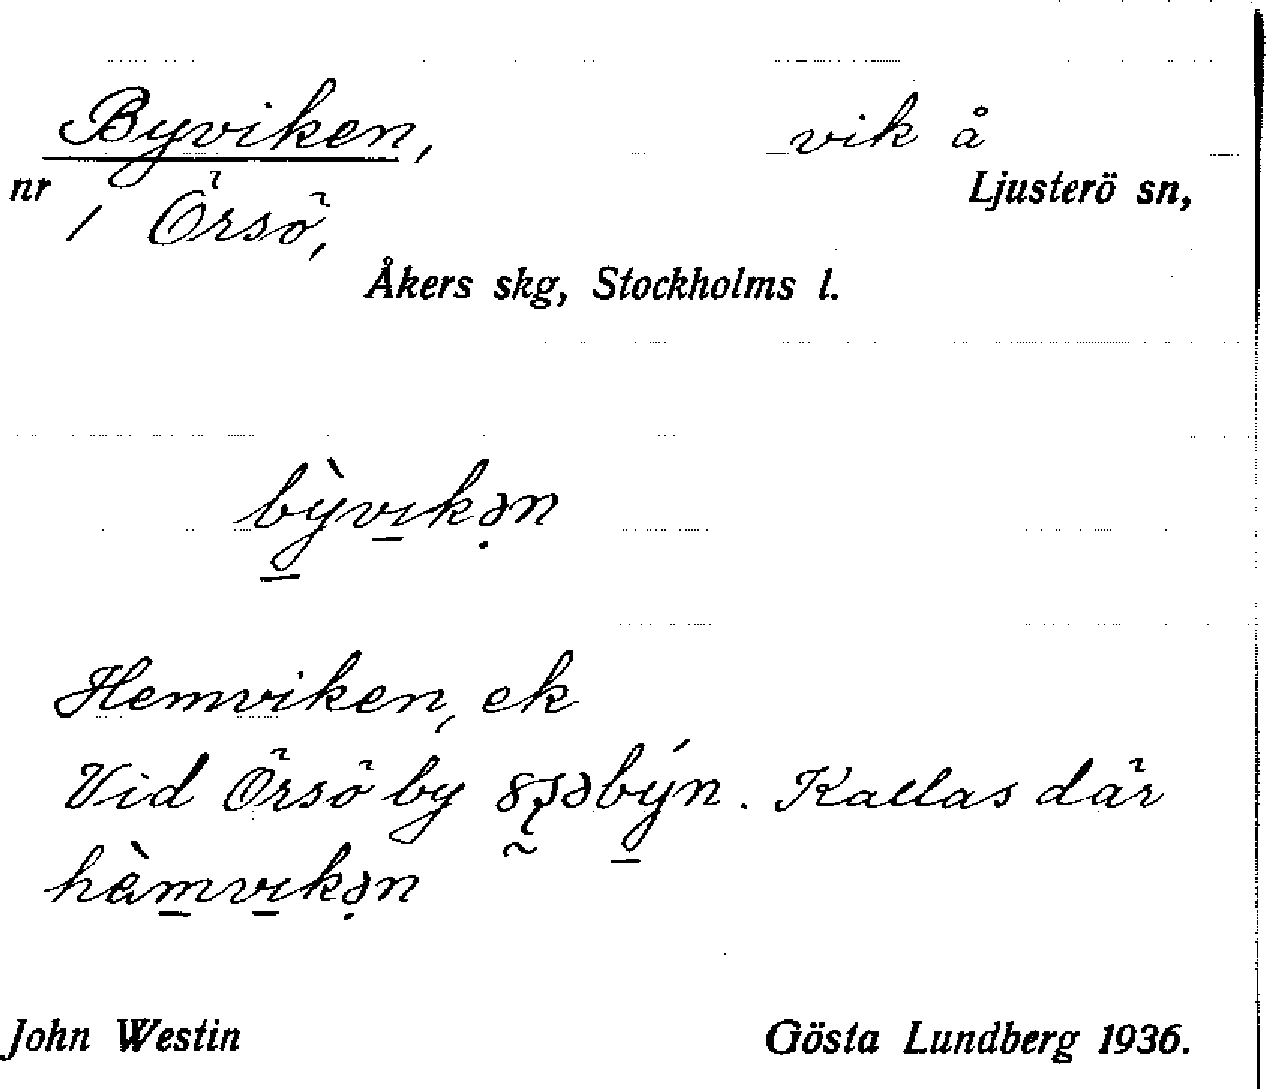 Byviken, vik å
nr 1 Örsö, Ljusterö sn,
Åkers skg, Stockholms l.
bỳvıkən
Hemviken, ek
Vid Örsö by býn. Kallas där
hèmvıkən
John Westin Gösta Lundberg 1936.